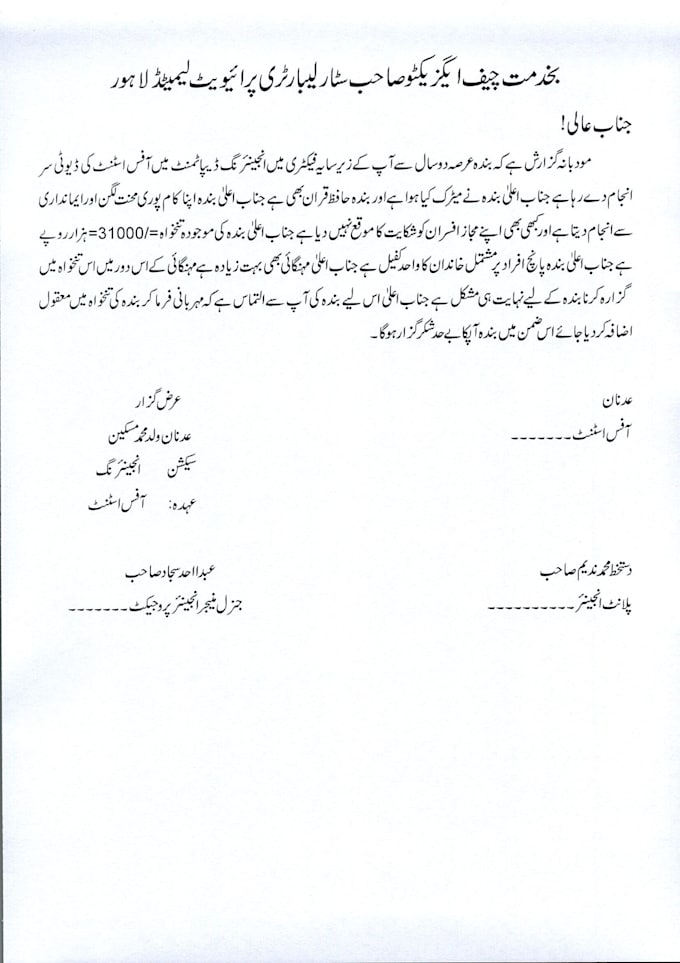 بخدمت چیف ایگزیکٹو صاحب سٹار لیبارٹری پرائیویٹ لیمیٹڈ لاہور
جناب عالی!
مودبانہ گزارش ہے کہ بندہ عرصہ دو سال سے آپ کے زیر سایہ فیکٹری میں انجینئرنگ ڈیپاٹمنٹ میں آفس اسٹنٹ کی ڈیوٹی سر
انجام دے رہا ہے جناب اعلیٰ بندہ نے میٹرک کیا ہوا ہے اور بندہ حافظ قران بھی ہے جناب اعلیٰ بندہ اپنا کام پوری محنت لگن اور ایمانداری
سے انجام دیتا ہے اور کبھی بھی اپنے مجاز افسران کو شکایت کا موقع نہیں دیا ہے جناب اعلیٰ بندہ کی موجودہ تنخواہ =/31000= ہزار روپے
ہے جناب اعلیٰ بندہ پانچ افراد پر مشتمل خاندان کا واحد کفیل ہے جناب اعلیٰ مہنگائی بھی بہت زیادہ ہے مہنگائی کے اس دور میں اس تنخواہ میں
گزارہ کرنا بندہ کے لیے نہایت ہی مشکل ہے جناب اعلیٰ اس لیے بندہ کی آپ سے التماس ہے کہ مہربانی فرما کر بندہ کی تنخواہ میں معقول
اضافہ کر دیا جائے اس ضمن میں بندہ آپکا بے حد شکر گزار ہوگا۔
عدنان
آفس اسٹنٹ-------
عرض گزار
عدنان ولد محمد مسکین
سیکشن انجینئرنگ
عہدہ: آفس اسٹنٹ
دستخط محمد ندیم صاحب
پلانٹ انجینئر----------
عبدااحد سجاد صاحب
جنرل منیجر انجینئر پروجیکٹ-------